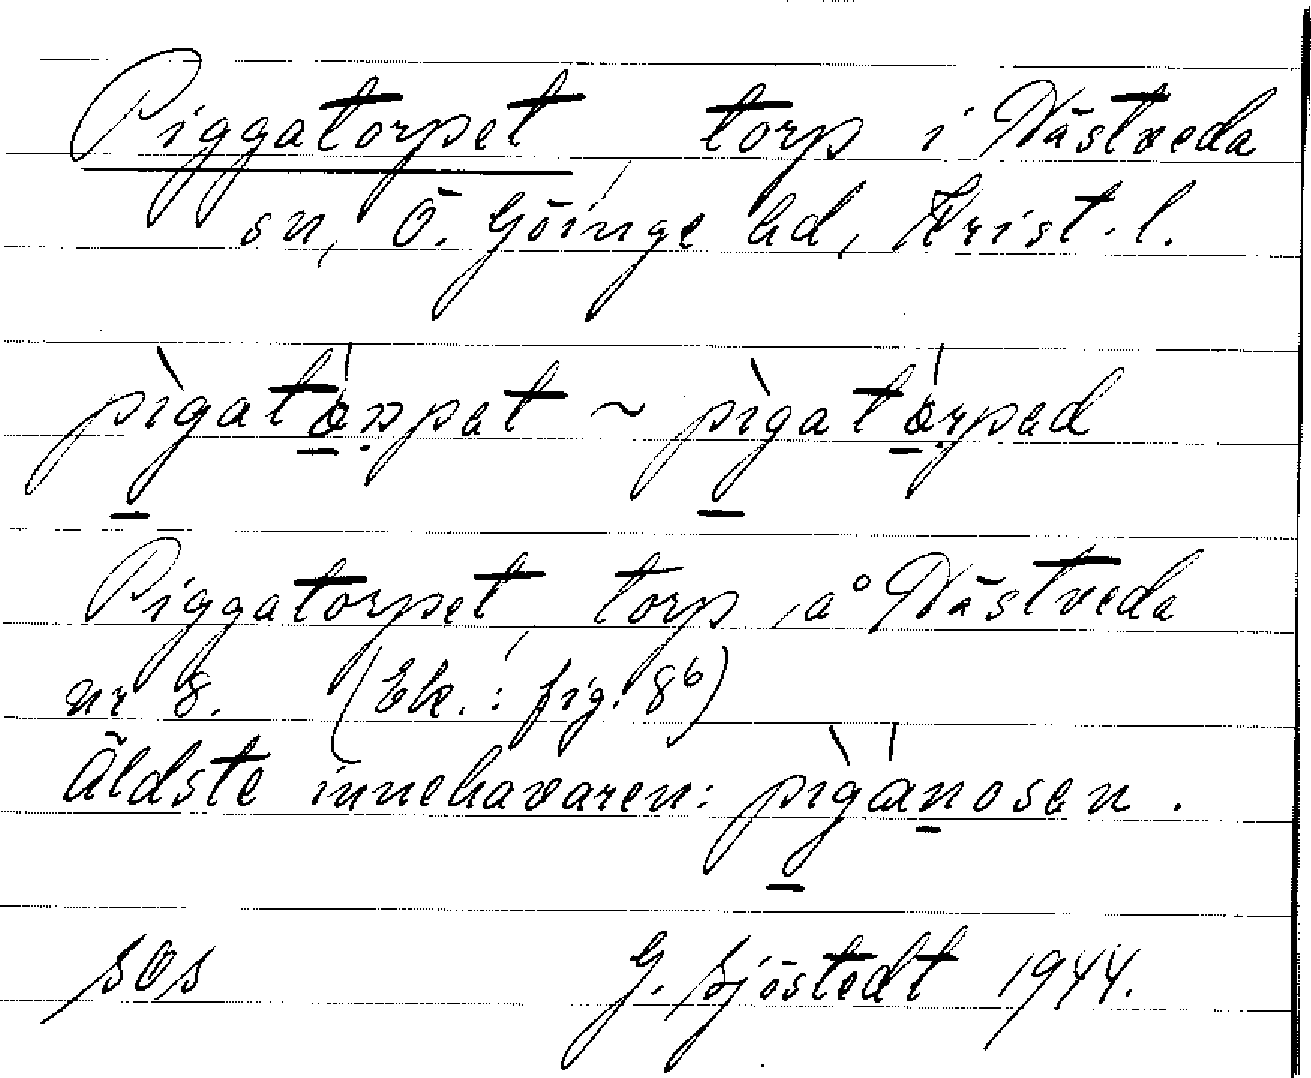 Piggatorpet, torp i Nästveda
sn, Ö. Göinge hd, Krist.l.
pìgatórpat ~ pìgatórpad
Piggatorpet, torp å Nästveda
nr 8. (Ek.: fig. 8⁶)
Äldste innehavaren: pìgánosen.
sos G. Sjöstedt 1944.